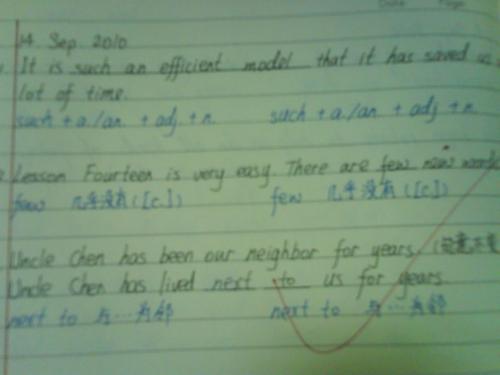 Date Page
14. Sep. 2010
It is such an efficient model that it has saved us a
lot of time.
such + a/an + adj + n. such + a/an + adj + n.
Lesson Fourteen is very easy. There are few new words
few 几乎没有([c.]) few 几乎没有([c.])
Uncle Chen has been our neighbor for years.
Uncle Chen has lived next to us for years.
next to 与…为邻 next to 与…为邻